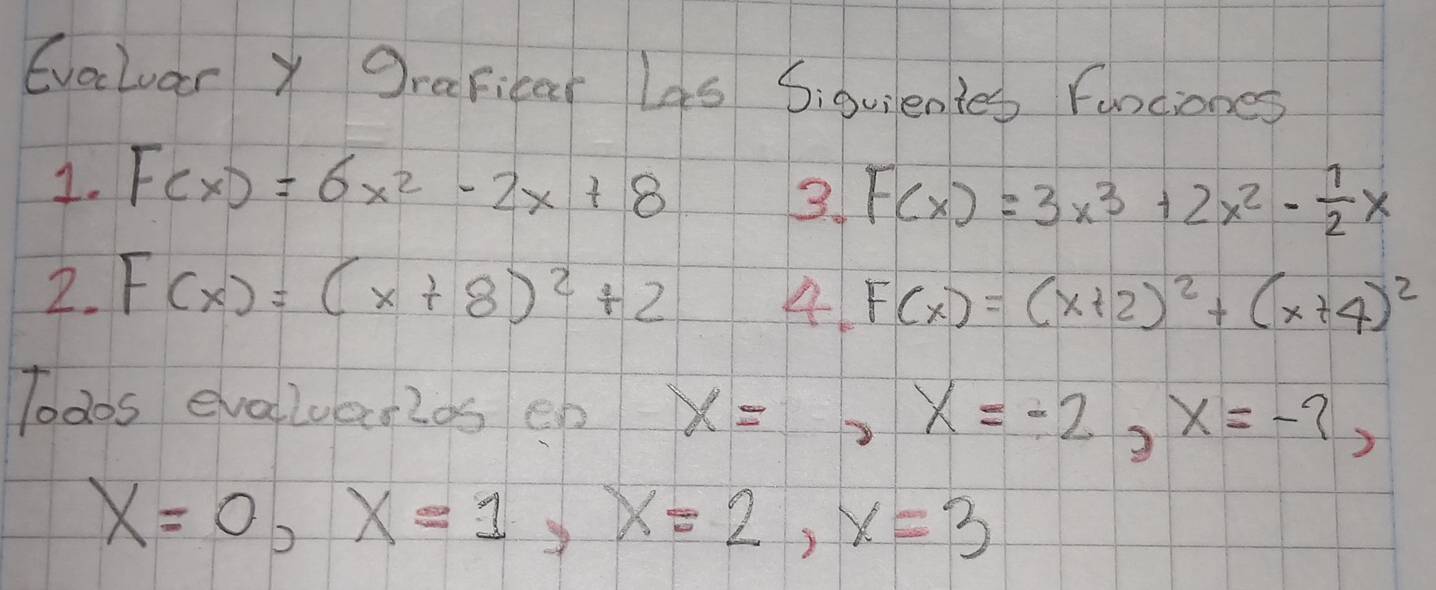 Evaluar y graficar Las Siguientes Funciones
1. F(x) = 6x² - 2x + 8
2. F(x) = (x + 8)² + 2
3. F(x) = 3x³ + 2x² - 1/2 x
4. F(x) = (x+2)² + (x+4)²
Todos evaluarlos en X = , X = -2, X = -?,
X = 0, X = 1, X = 2, X = 3